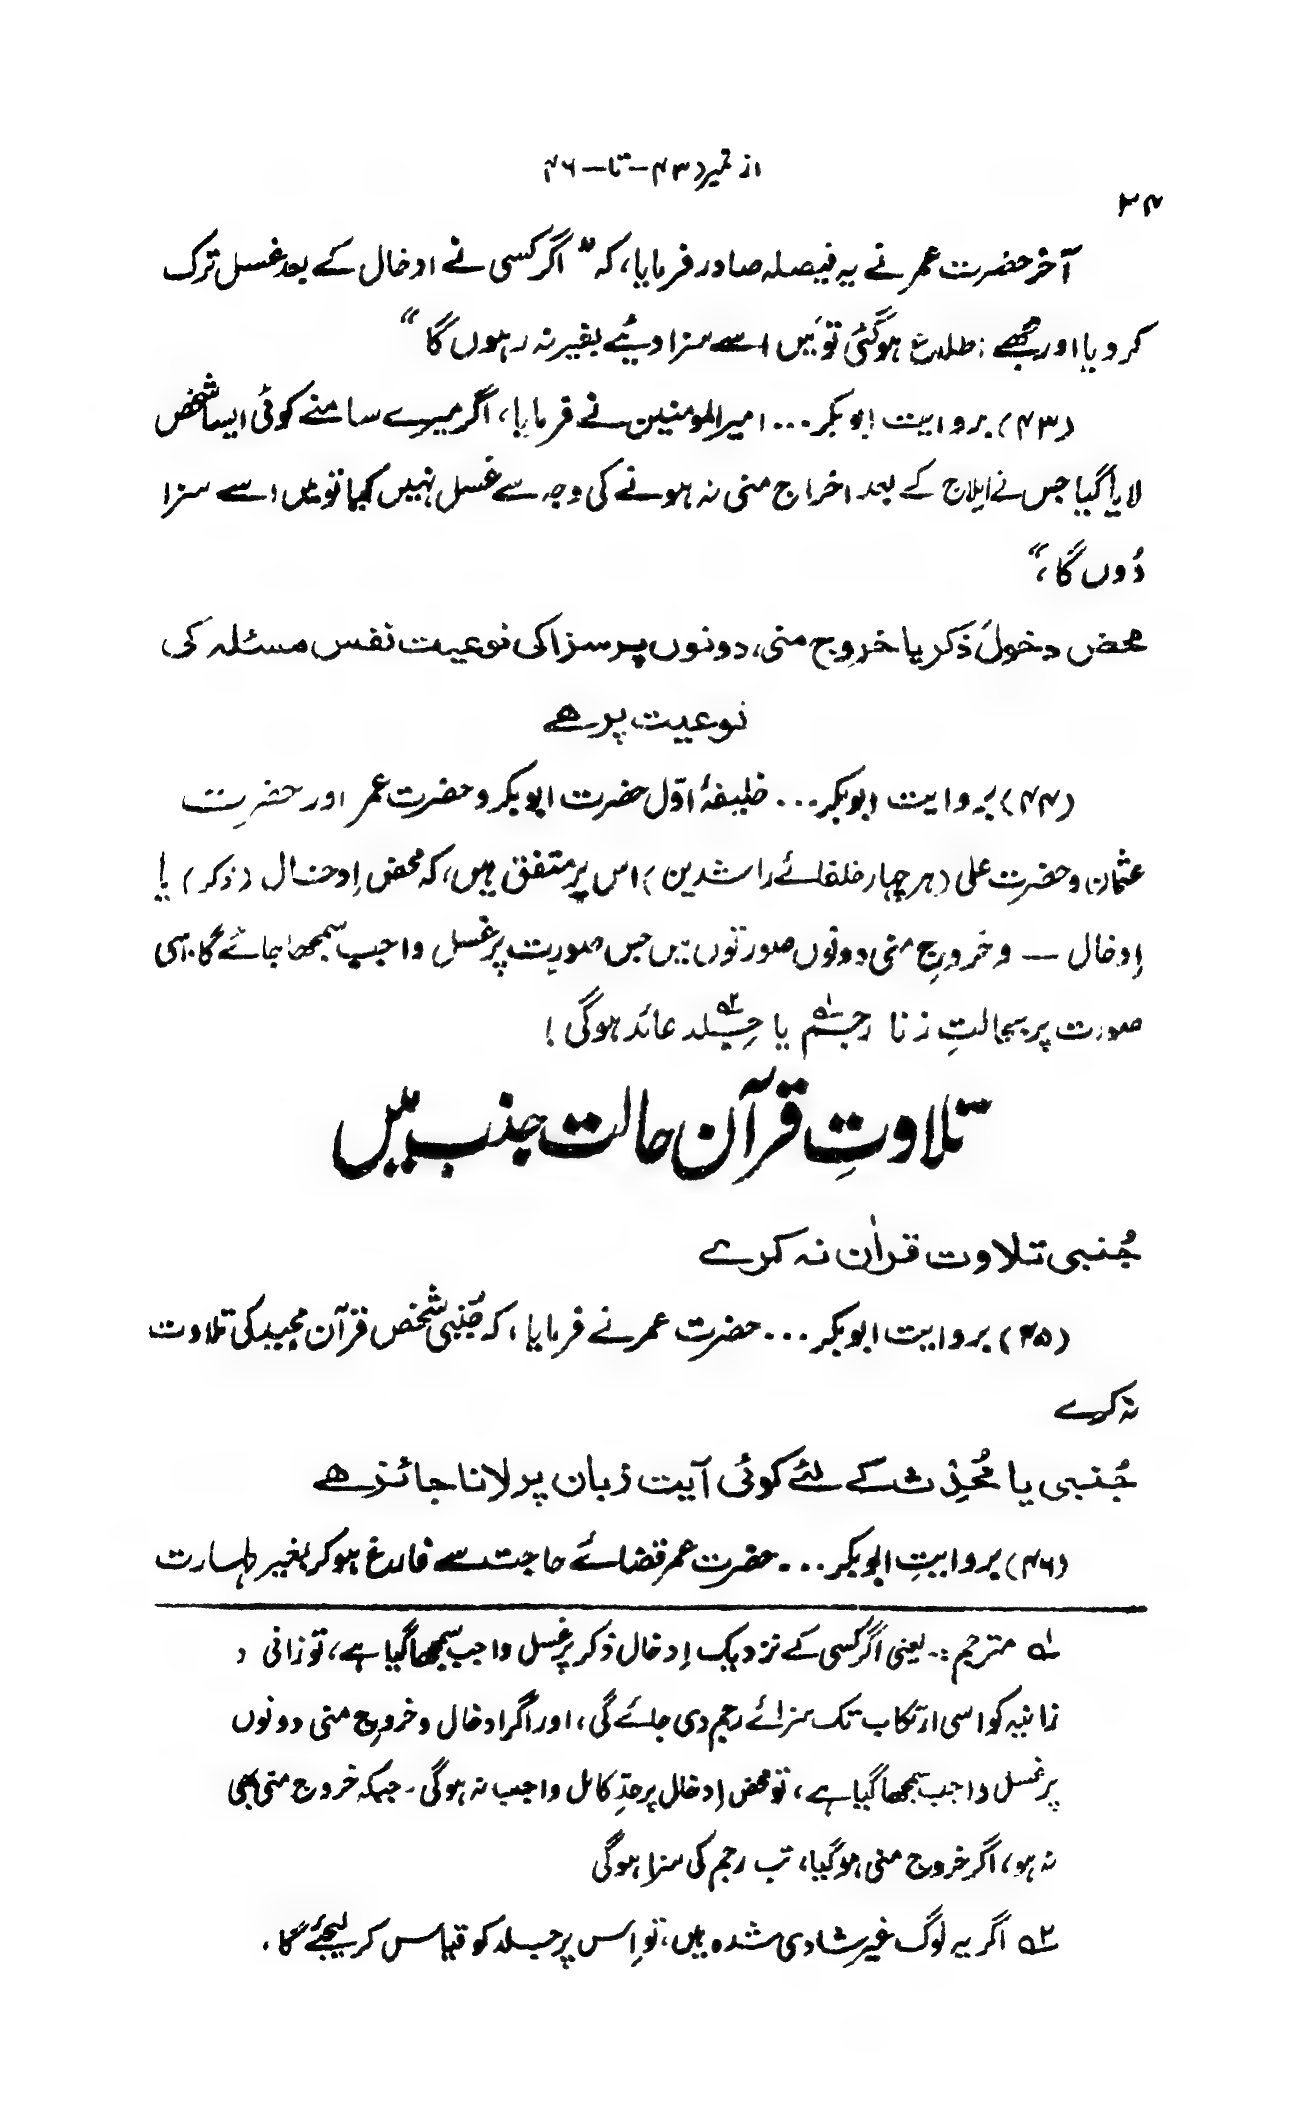 از نمبر ۴۳-تا-۴۶
۳۴
آخر حضرت عمر نے یہ فیصلہ صادر فرمایا، کہ " اگر کسی نے ادخال کے بعد غسل ترک
کر دیا اور مجھے اطلاع ہو گئی تو میں اسے سزا دیئے بغیر نہ رہوں گا "
(۴۳) بروایت ابوبکر... امیر المومنین نے فرمایا، اگر میرے سامنے کوئی ایسا شخص
لایا گیا جس نے ایلاج کے بعد اخراج منی نہ ہونے کی وجہ سے غسل نہیں کیا تو میں اسے سزا
دُوں گا ،"
محض دخولَ ذکر یا خروج منی، دونوں پر سزا کی نوعیت نفس مسئلہ کی
نوعیت پر ھے
(۴۴) بروایت ابوبکر... خلیفۂ اوّل حضرت ابوبکر و حضرت عمر اور حضرت
عثمان و حضرت علی (ہر چہار خلفائے راشدین) اس پر متفق ہیں، کہ محض اِدخال (ذکر) یا
اِدخال — و خروجِ منی دونوں صورتوں میں جس صورت پر غسل واجب سمجھا جائے گا۔ اسی
صورت پر بحالتِ زنا رجم۱ یا جِلد۲ عائد ہوگی !
تلاوتِ قرآن حالت جنب میں
جُنبی تلاوت قراٰن نہ کرے
(۴۵) بروایت ابوبکر... حضرت عمر نے فرمایا، کہ جُنبی شخص قرآن مجید کی تلاوت
نہ کرے
جُنبی یا مُحدِث کے لئے کوئی آیت زبان پر لانا جائز ھے
(۴۶) بروایتِ ابوبکر... حضرت عمر قضائے حاجت سے فارغ ہو کر بغیر طہارت
۱؎ مترجم :۔ یعنی اگر کسی کے نزدیک اِدخال ذکر پر غسل واجب سمجھا گیا ہے، تو زانی و
زانیہ کو اسی ارتکاب تک سزائے رجم دی جائے گی، اور اگر ادخال و خروج منی دونوں
پر غسل واجب سمجھا گیا ہے، تو محض اِدخال پر حدِّ کامل واجب نہ ہوگی۔ جبکہ خروج منی بھی
نہ ہو، اگر خروج منی ہوگیا، تب رجم کی سزا ہوگی
۲؎ اگر یہ لوگ غیر شادی شدہ ہیں، تو اِس پر جلد کو قیاس کر لیجئے گا۔